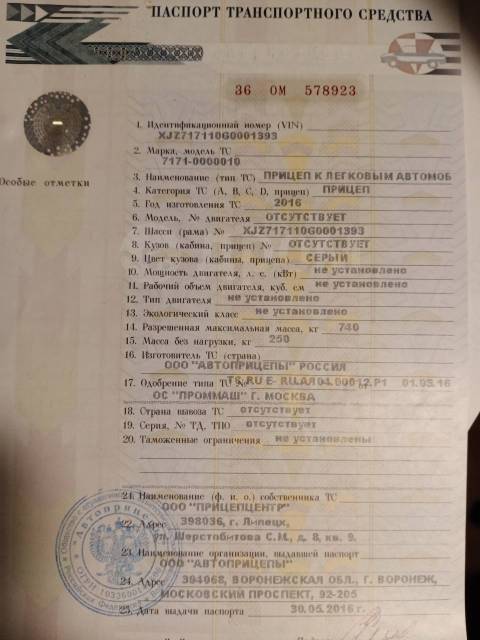 ПАСПОРТ ТРАНСПОРТНОГО СРЕДСТВА
36 ОМ 578923
1. Идентификационный номер (VIN)
XJZ717110G0001393
2. Марка, модель ТС
7171-0000010
Особые отметки
3. Наименование (тип ТС) ПРИЦЕП К ЛЕГКОВЫМ АВТОМОБ
4. Категория ТС (А, В, С, D, прицеп) ПРИЦЕП
5. Год изготовления ТС 2016
6. Модель, № двигателя ОТСУТСТВУЕТ
7. Шасси (рама) № XJZ717110G0001393
8. Кузов (кабина, прицеп) № ОТСУТСТВУЕТ
9. Цвет кузова (кабины, прицепа) СЕРЫЙ
10. Мощность двигателя, л. с. (кВт) не установлено
11. Рабочий объем двигателя, куб. см не установлено
12. Тип двигателя не установлено
13. Экологический класс не установлено
14. Разрешенная максимальная масса, кг 740
15. Масса без нагрузки, кг 250
16. Изготовитель ТС (страна)
ООО "АВТОПРИЦЕПЫ" РОССИЯ
17. Одобрение типа ТС №
ОС "ПРОММАШ" Г. МОСКВА
18. Страна вывоза ТС отсутствует
19. Серия, № ТД, ТПО отсутствует
20. Таможенные ограничения не установлены
21. Наименование (ф. и. о.) собственника ТС
ООО "ПРИЦЕПЦЕНТР"
22. Адрес 398036, г. Липецк,
ул. Шерстобитова С.М., д. 8, кв. 9.
23. Наименование организации, выдавшей паспорт
ООО "АВТОПРИЦЕПЫ"
24. Адрес 394068, ВОРОНЕЖСКАЯ ОБЛ., Г. ВОРОНЕЖ,
МОСКОВСКИЙ ПРОСПЕКТ, 92-205
25. Дата выдачи паспорта 30.05.2016 г.